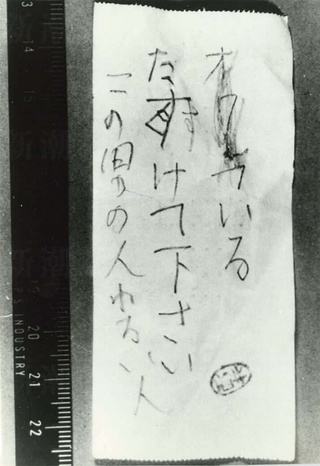 オ いる
たすけて下さい
この男の人わるい人
20
21
22
INDUSTRY